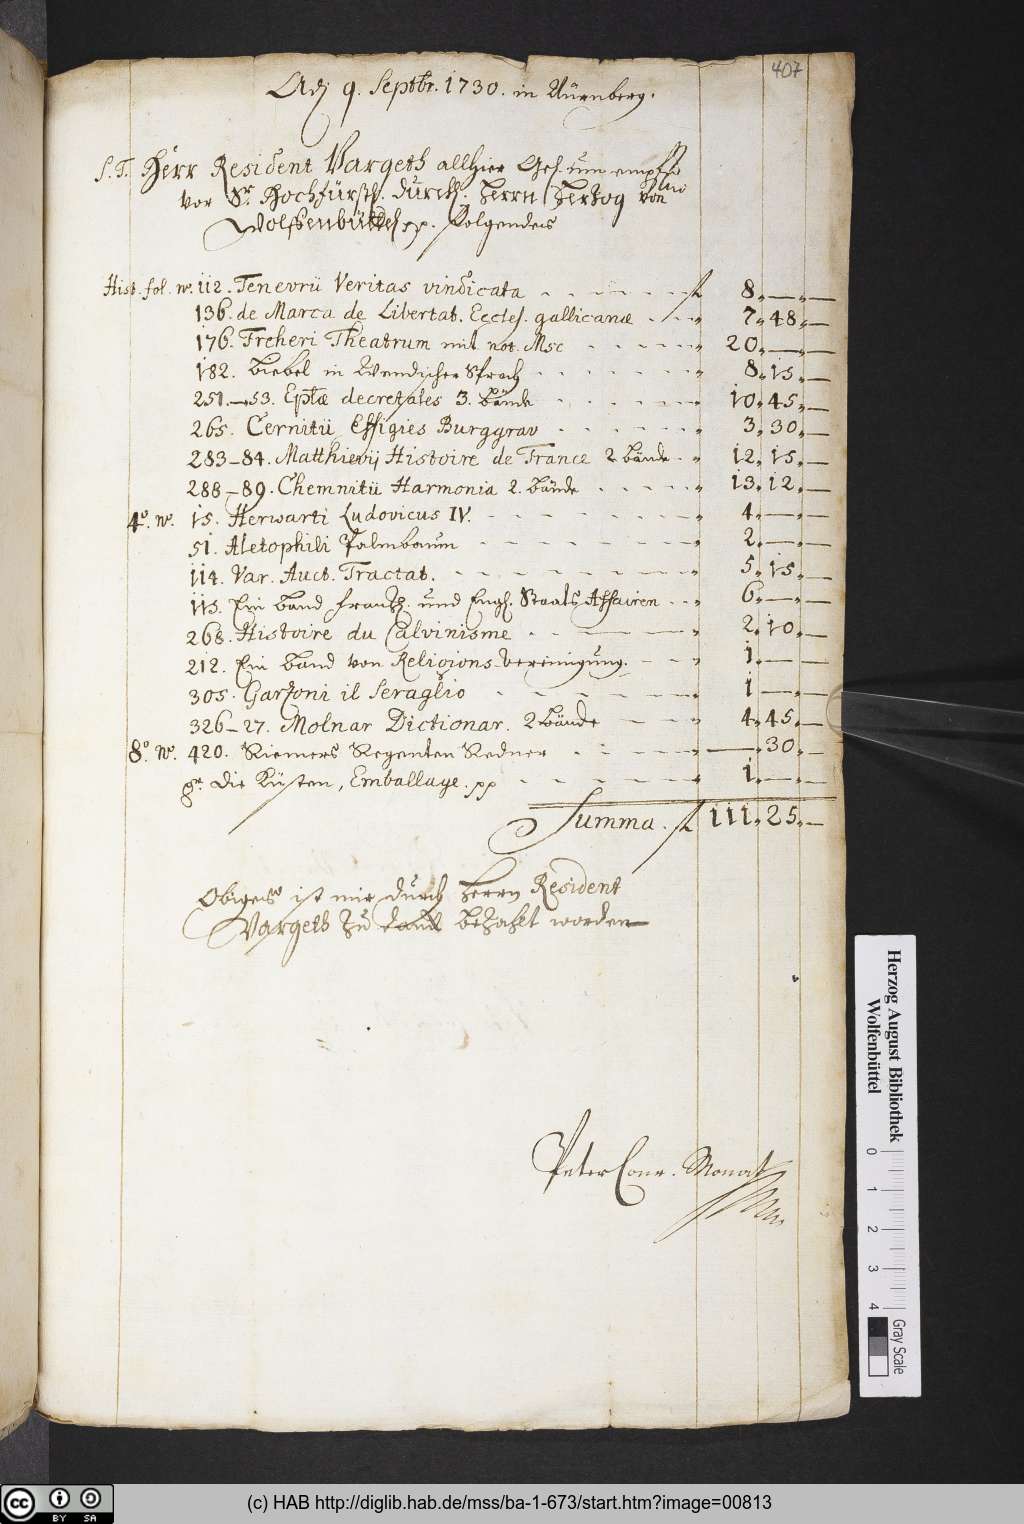 407
Adj 9. Septbr. 1730. in Nürnberg.
S. T. Herr Resident Vargeth allhier
vor Sr. Hochfürstl. Durchl. Herrn Hertzog von
Wolffenbüttel pp. folgendes
Hist. fol. No. 112. Tenevrii Veritas vindicata - - - - - fl 8„ — „ —
136. de Marca de Libertat. Eccles. gallicanæ - - - „ 7„ 48„ —
176. Freheri Theatrum mit not. Msc - - - - „ 20„ — „ —
182. Biebel in Wendischer Sprach - - - - - „ 8„ 15„ —
251.—53. Eptæ decretales 3. Bände - - - - „ 10„ 45„ —
265. Cernitii Effigies Burggrav - - - - - „ 3„ 30„ —
283—84. Matthievij Histoire de France 2 Bände - „ 12„ 15„ —
288—89. Chemnitii Harmonia 2. Bände - - - - „ 13„ 12„ —
4o. No. 15. Herwarti Ludovicus IV. - - - - - „ 4„ — „ —
51. Aletophili Palmbaum - - - - - - „ 2„ — „ —
114. Var. Auct. Tractat. - - - - - - „ 5„ 15„ —
115. Ein Band Frantz. und Engl. Staats Affairen - - „ 6„ — „ —
268. Histoire du Calvinisme - - — — „ 2„ 10„ —
212. Ein Band von Religions-Vereinigung. - - - „ 1„ — „ —
305. Garzoni il Seraglio - - - - - - „ 1 — „ —
326—27. Molnar Dictionar. 2 Bände - - - „ 4„ 45„ —
8o. No. 420. Riemers Regenten Redner - - - - „ — „ 30„ —
die Küsten, Emballage. pp - - - - - „ 1„ — „ —
Summa. fl 111„ 25„ —
Obiges ist mir durch Herrn Resident
Vargeth zu bezahlt worden
Peter Conr. Monat
Herzog August Bibliothek
Wolfenbüttel
0 1 2 3 4
Gray Scale
cc BY SA
(c) HAB http://diglib.hab.de/mss/ba-1-673/start.htm?image=00813